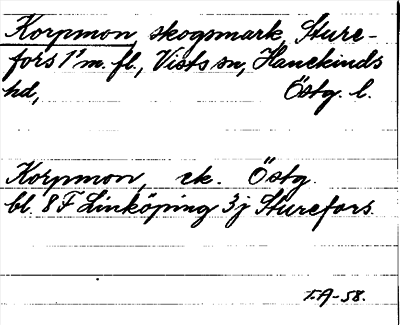 Korpmon, skogsmark, Sture-
fors 1¹ m. fl., Vists sn, Hanekinds
hd, Östg. l.
Korpmon, ek. Östg.
bl. 8 F Linköping 3j Sturefors.
T.A-58.